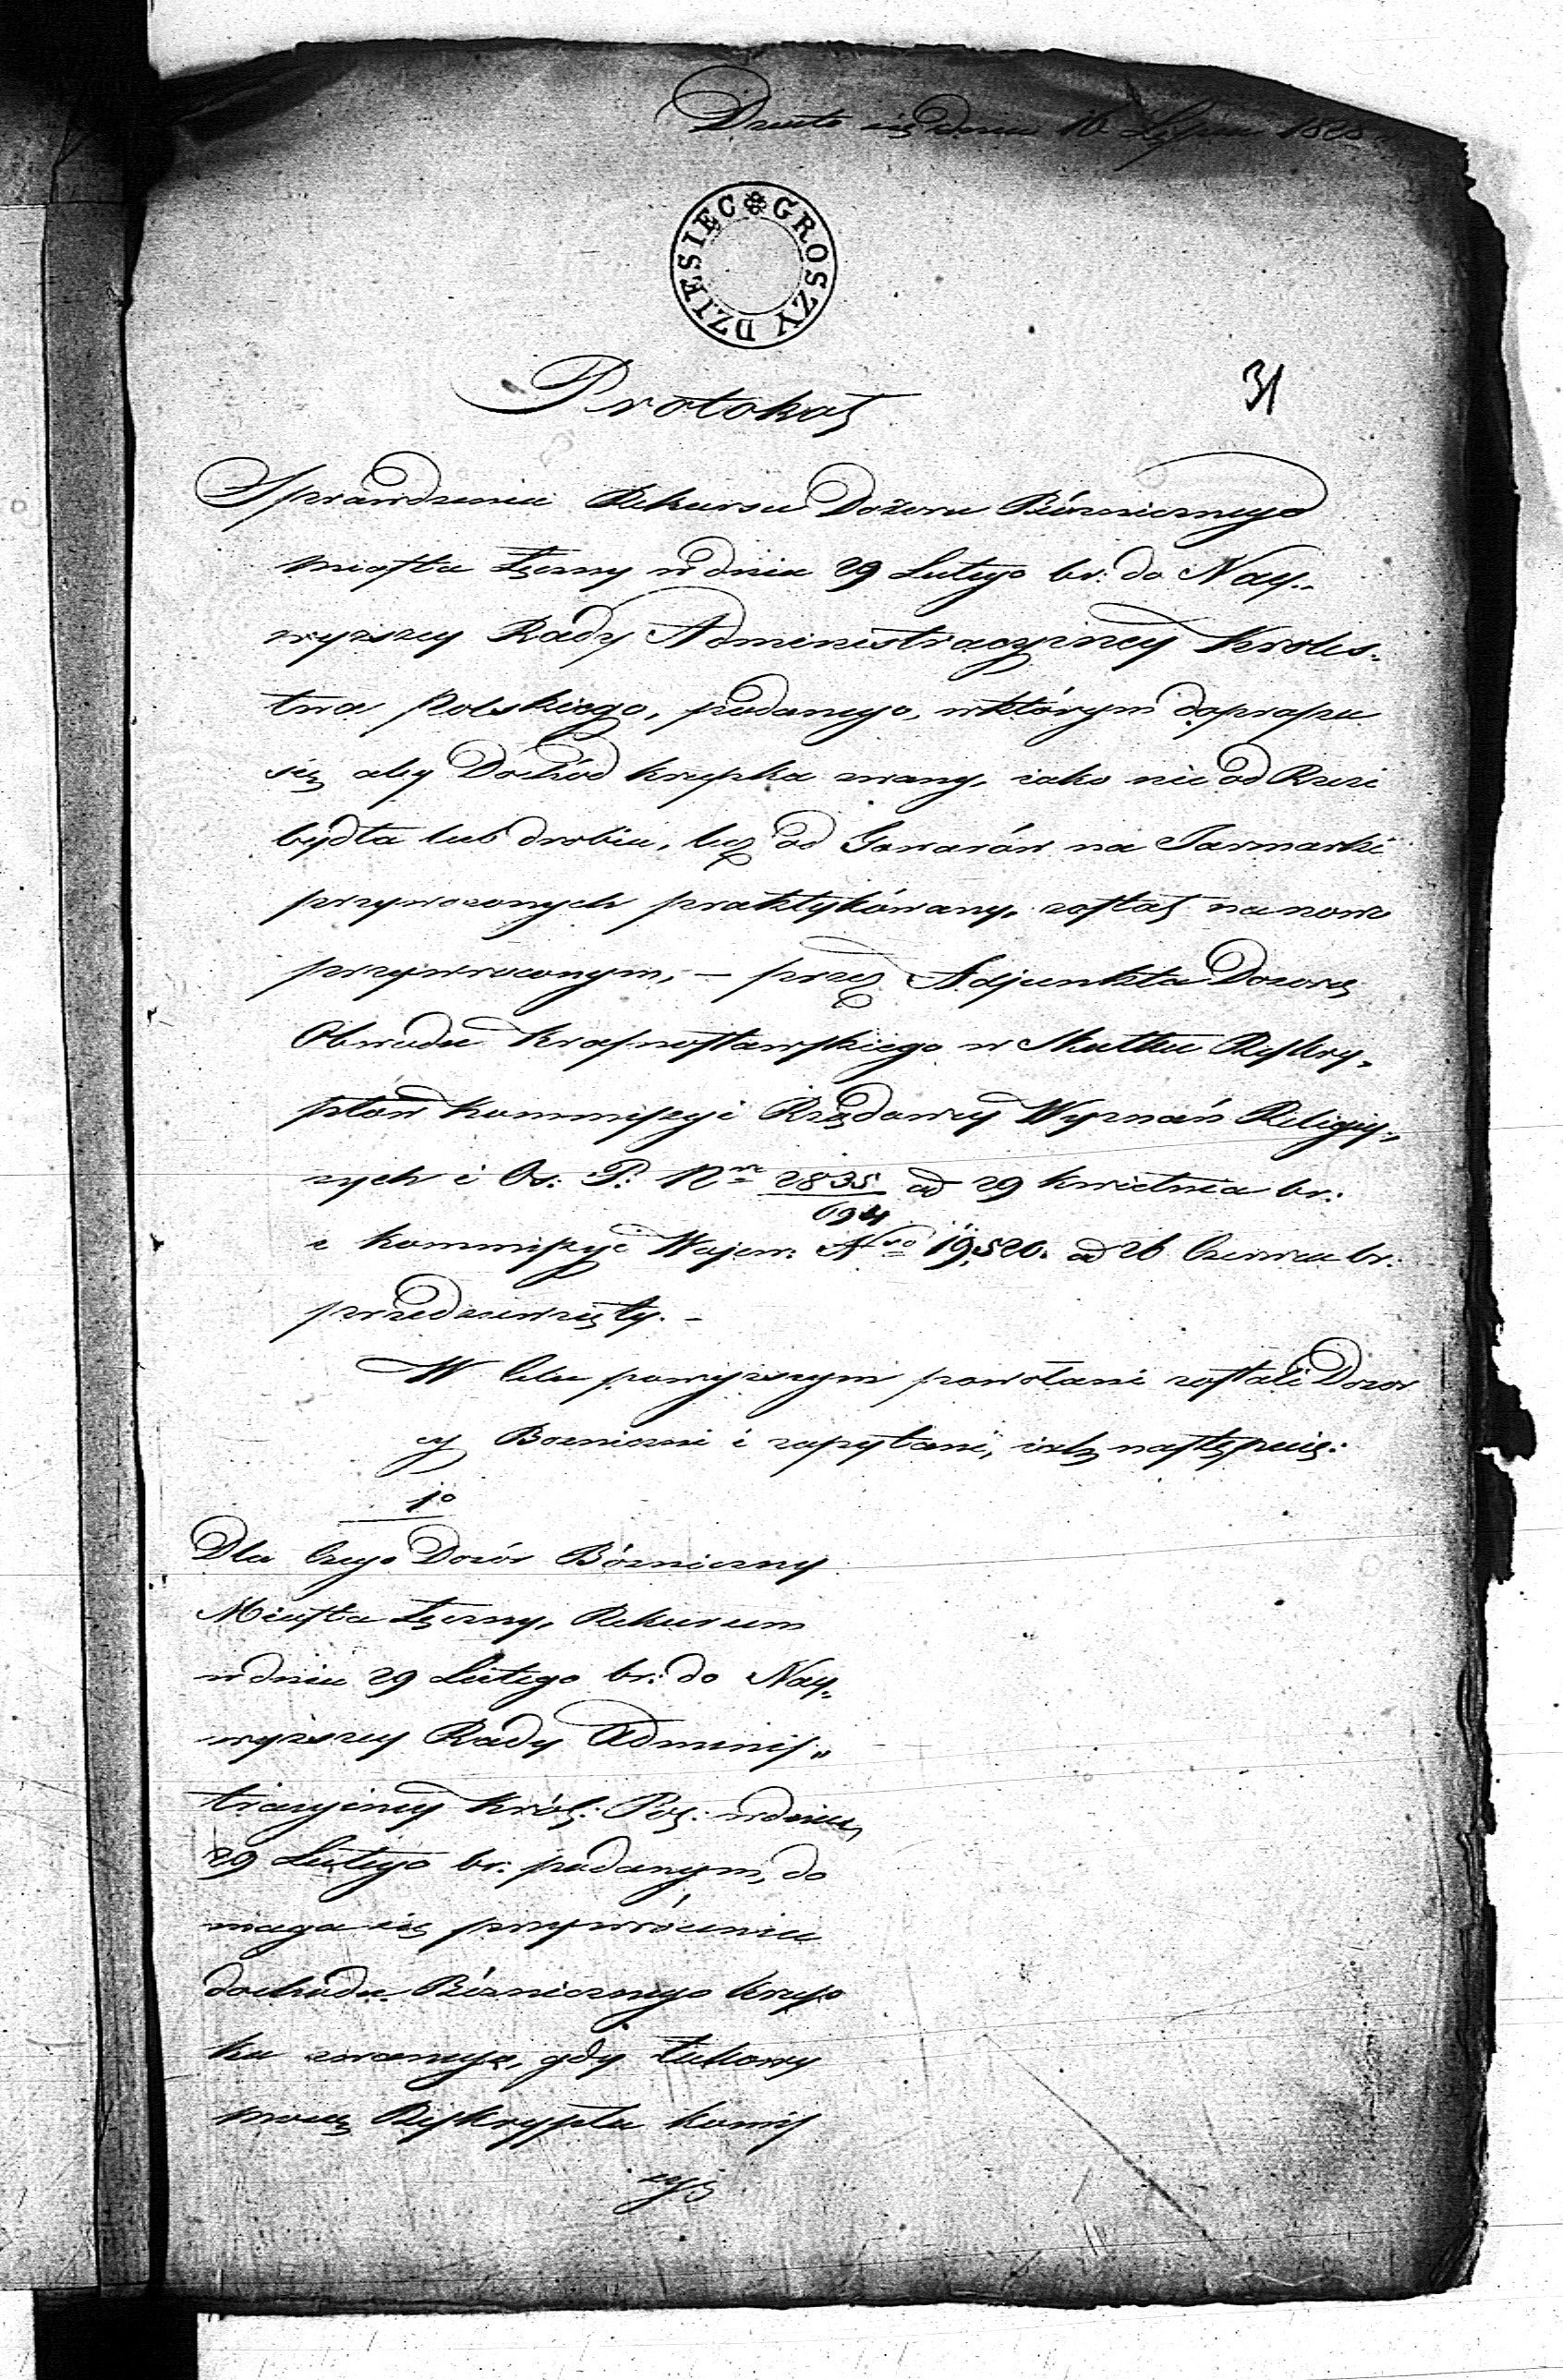 Działo się dnia 16 Lipca 1828
DZIESIĘC GROSZY
31
Protokół
Sprawdzenia Rekursu Dozoru Bóżnicznego
miasta Łęczny w dniu 29 Lutego br: do Nay-
wyższey Rady Administracyiney Króles-
twa Polskiego, podanego, w którym doprasza
się aby Dochód krupka zwany, iako nie od Rzezi
bydła lub drobiu, lecz od Towarów na Jarmarki
przywożonych praktykówany, został na nowo
przywroconym, — przez Adjunkta Dozorcę
Obwodu Krasnostawskiego w Skutku Reskry-
ptów Kommissyi Rządowey Wyznań Religiy-
nych i Oś: P: Nro 2835/694 od 29 Kwietnia br:
i Kommissyi Wojew: Nro 19,520. od 26 Czerwca br:
przedsiewzięty. -
W Celu powyższym powołani zostali Dozor
cy Bozniczni i zapytani, iak następuie:
1o
Dla Czego Dozór Bózniczny
Miasta Łęczny, Rekursem
w dniu 29 Lutego br: do Nay-
wyższey Rady Adminis"
tracyiney Król: Pol: w dniu
29 Lutego br: podanym, do
maga się przywrócenia
dochodu Bóżnicznego krup
ka zwanego, gdy takowy
mocą Reskryptu Komis
syi